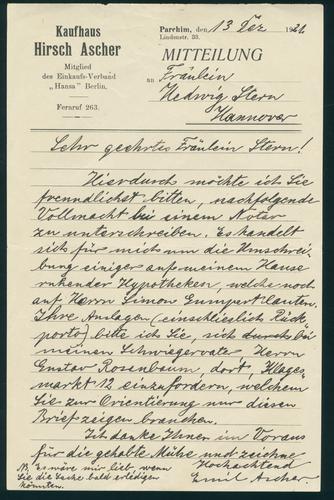 Kaufhaus
Hirsch Ascher
Mitglied
des Einkaufs-Verband
„Hansa" Berlin.
Fernruf 263.
Parchim, den 13 Dez 1921.
Lindenstr. 33.
MITTEILUNG
an Fräulein
Hedwig Stern
Hannover
Sehr geehrtes Fräulein Stern!
Hierdurch möchte ich Sie
freundlichst bitten, nachfolgende
Vollmacht bei einem Notar
zu unterschreiben. Es handelt
sich für mich um die Umschrei-
bung einiger auf meinem Hause
ruhender Hypotheken, welche noch
auf Herrn Simon Gumpert lauten.
Ihre Auslagen (einschließlich Rück-
porto) bitte ich Sie, sich durch bei
meinem Schwiegervater Herrn
Gustav Rosenbaum, dort, Klages-
markt 12 einzufordern, welchem
Sie zur Orientierung nur diesen
Brief zeigen brauchen.
Ich danke Ihnen im Voraus
für die gehabte Mühe und zeichne
Hochachtend
Emil Ascher.
NB. Es wäre mir lieb, wenn
Sie die Sache bald erledigen
könnten.